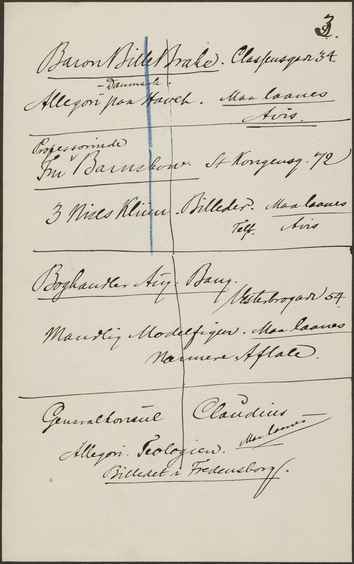 3.
Baron Bille Brahe. Classensgade 34
- Danmark -
Allegori paa Havet. Maa laanes
Avis.
Professorinde
Fru Barnekow St Kongensg. 72
3 Niels Klim. Billeder. Maa laanes
Telf. Avis
Boghandler Aug. Bang.
Vesterbrogade 54
Mandlig Modelfigur. Maa laanes
Nærmere Aftale.
Generalkonsul Claudius —
Allegori. Teologien. Maa laanes
Billedet i Fredensborg.